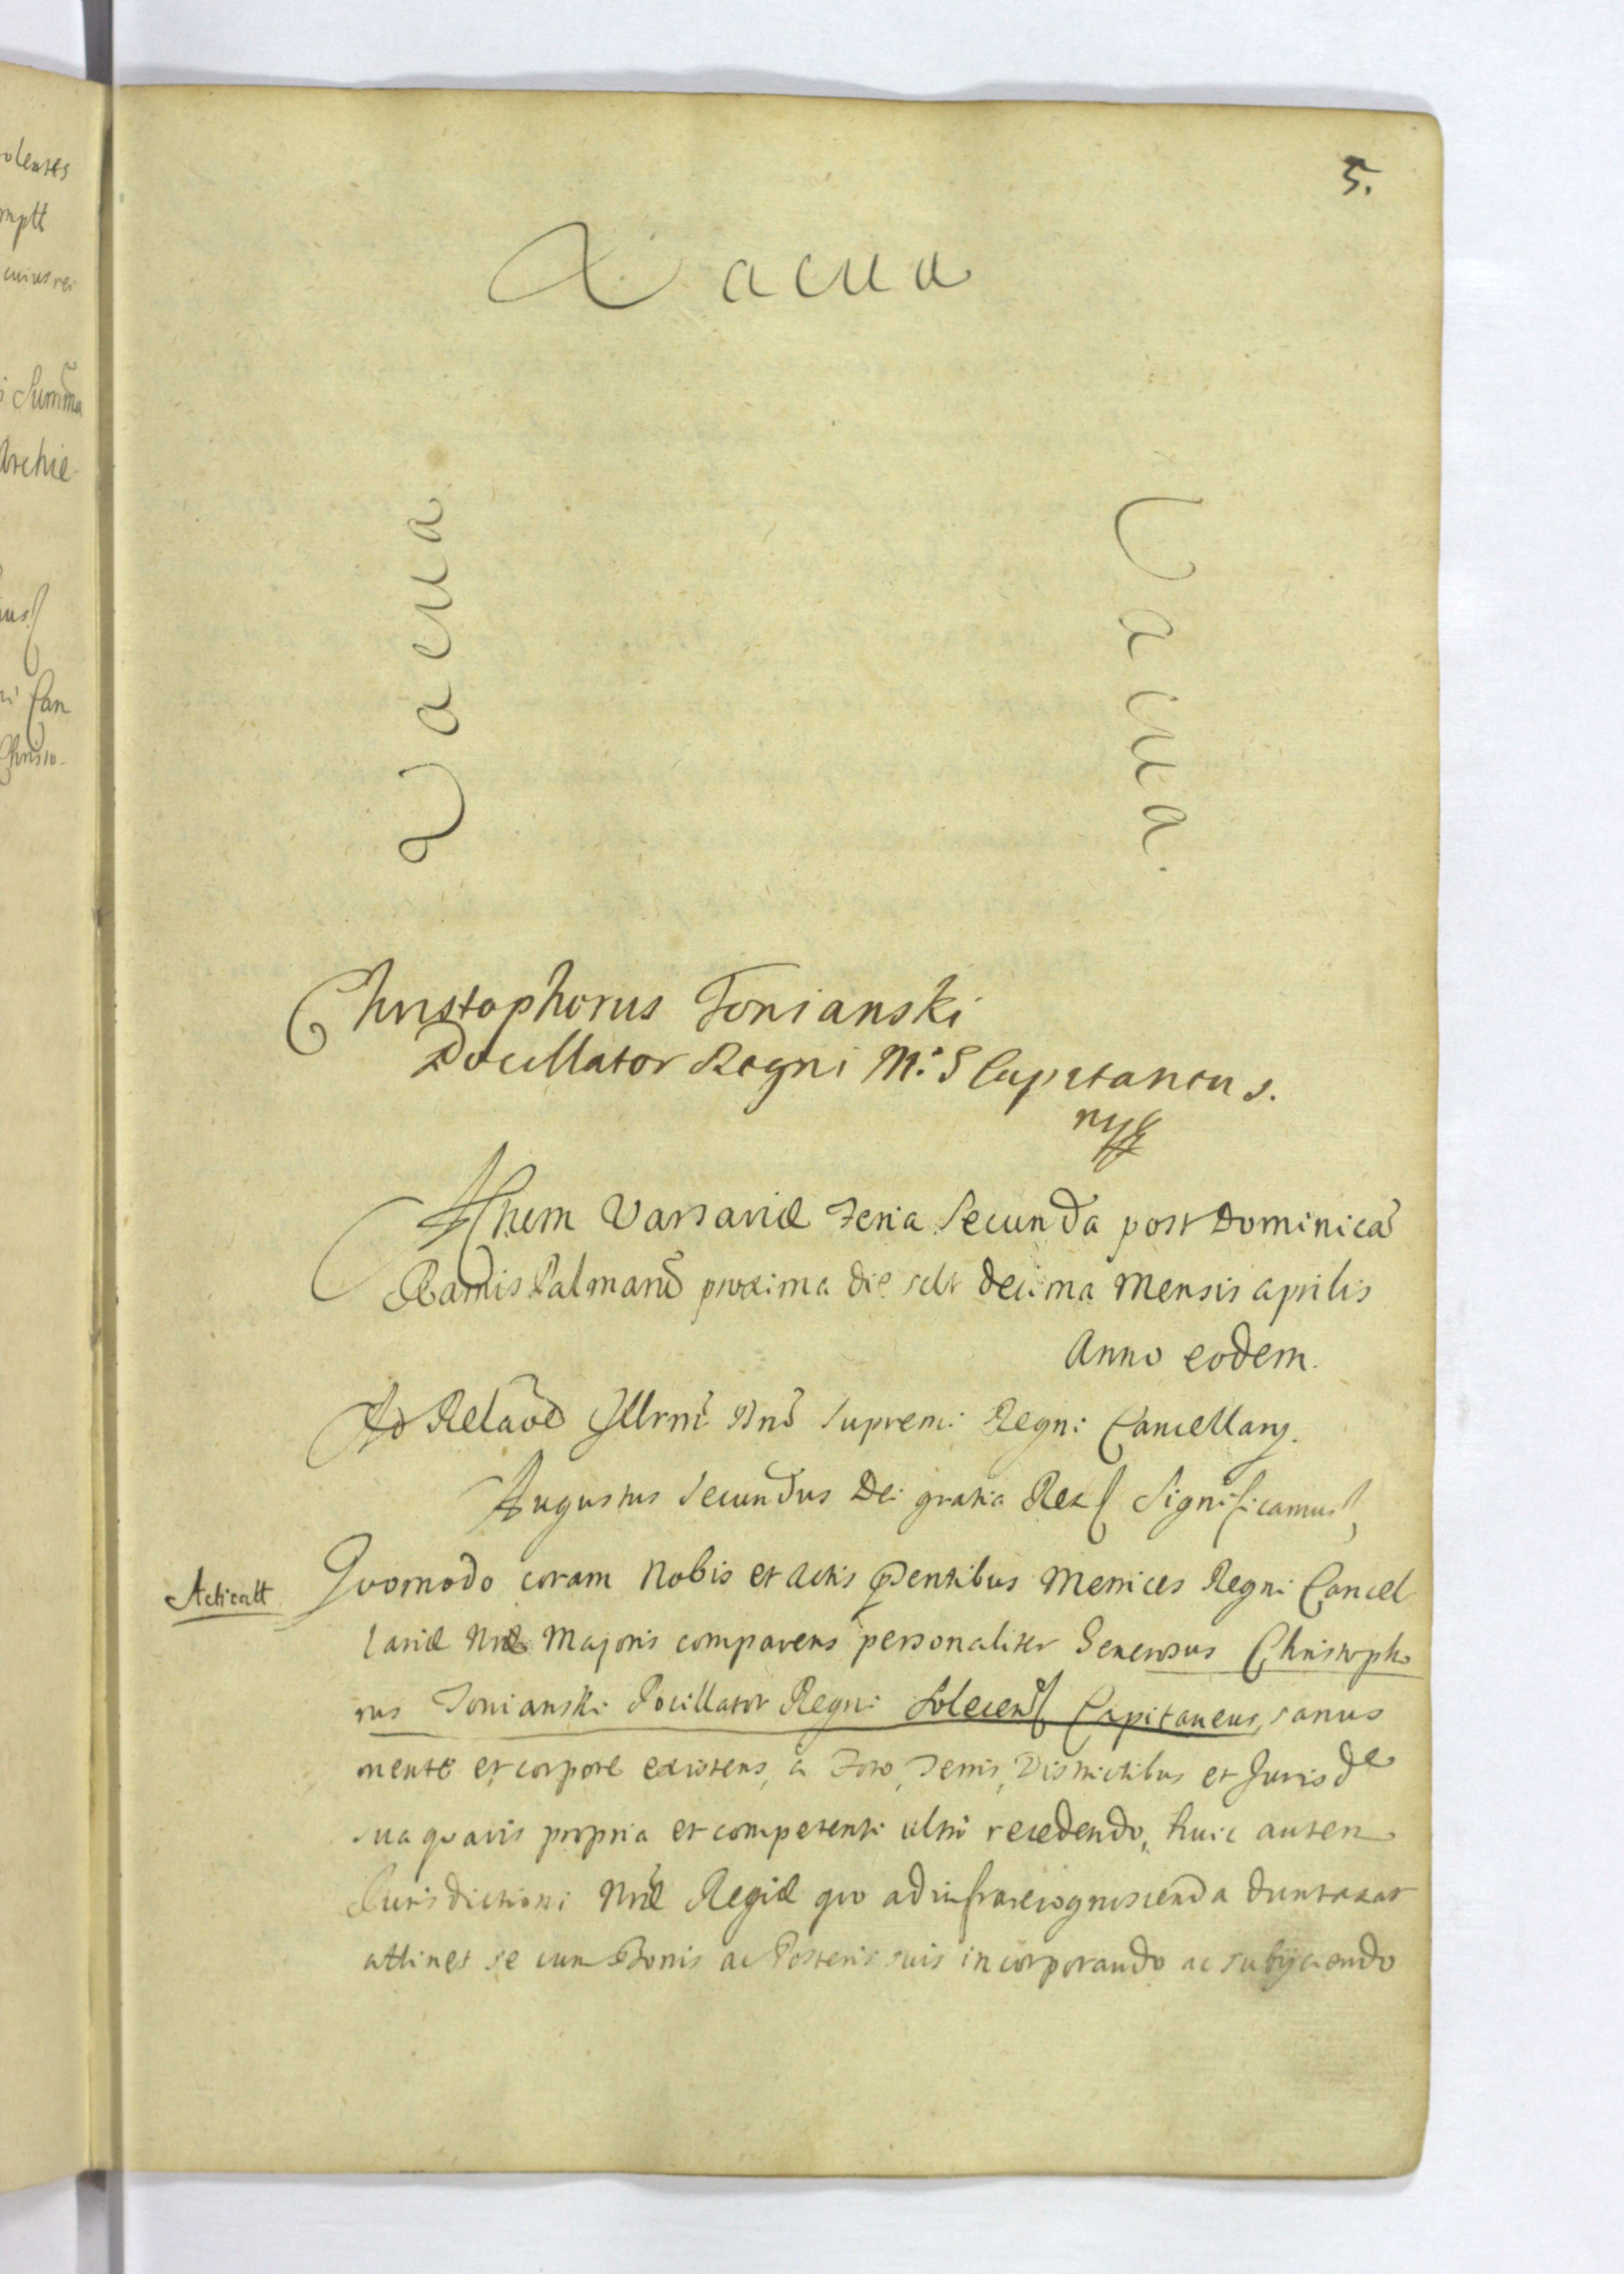 5.
Vacua
Vacua
Vacua.
Christophorus Tonianski
Pocillator Regni M: S Capitaneus.
Actum Varsaviæ Feria Secunda post Dominicã
Ramis Palmarũ proxima die sclt decima Mensis aprilis
Anno eodem.
Ad Relãoẽ Jllrmi Dni Supremi Regni Cancellarij.
Augustus Secundus Dei gratia Rex Significamus
Acticatt
Quomodo coram Nobis et Actis Pñtibus Metrices Regni Cancel
lariæ Nræ Majoris comparens personaliter Generosus Christopho
rus Tonianski Pocillator Regni Solecen Capitaneus, sanus
mente et corpore existens, à Foro, Terris, Districtibus et Jurisde
sua quavis propria et competenti ultrò recedendo, huic autem
Jurisdictioni Nræ Regiæ quo ad infrarecognoscenda duntaxat
attinet se cum Bonis ac Posteris suis incorporando ac subijciendo
olentes
mptt
cuius rei
Summa
Archie-
ni Can
Christo-